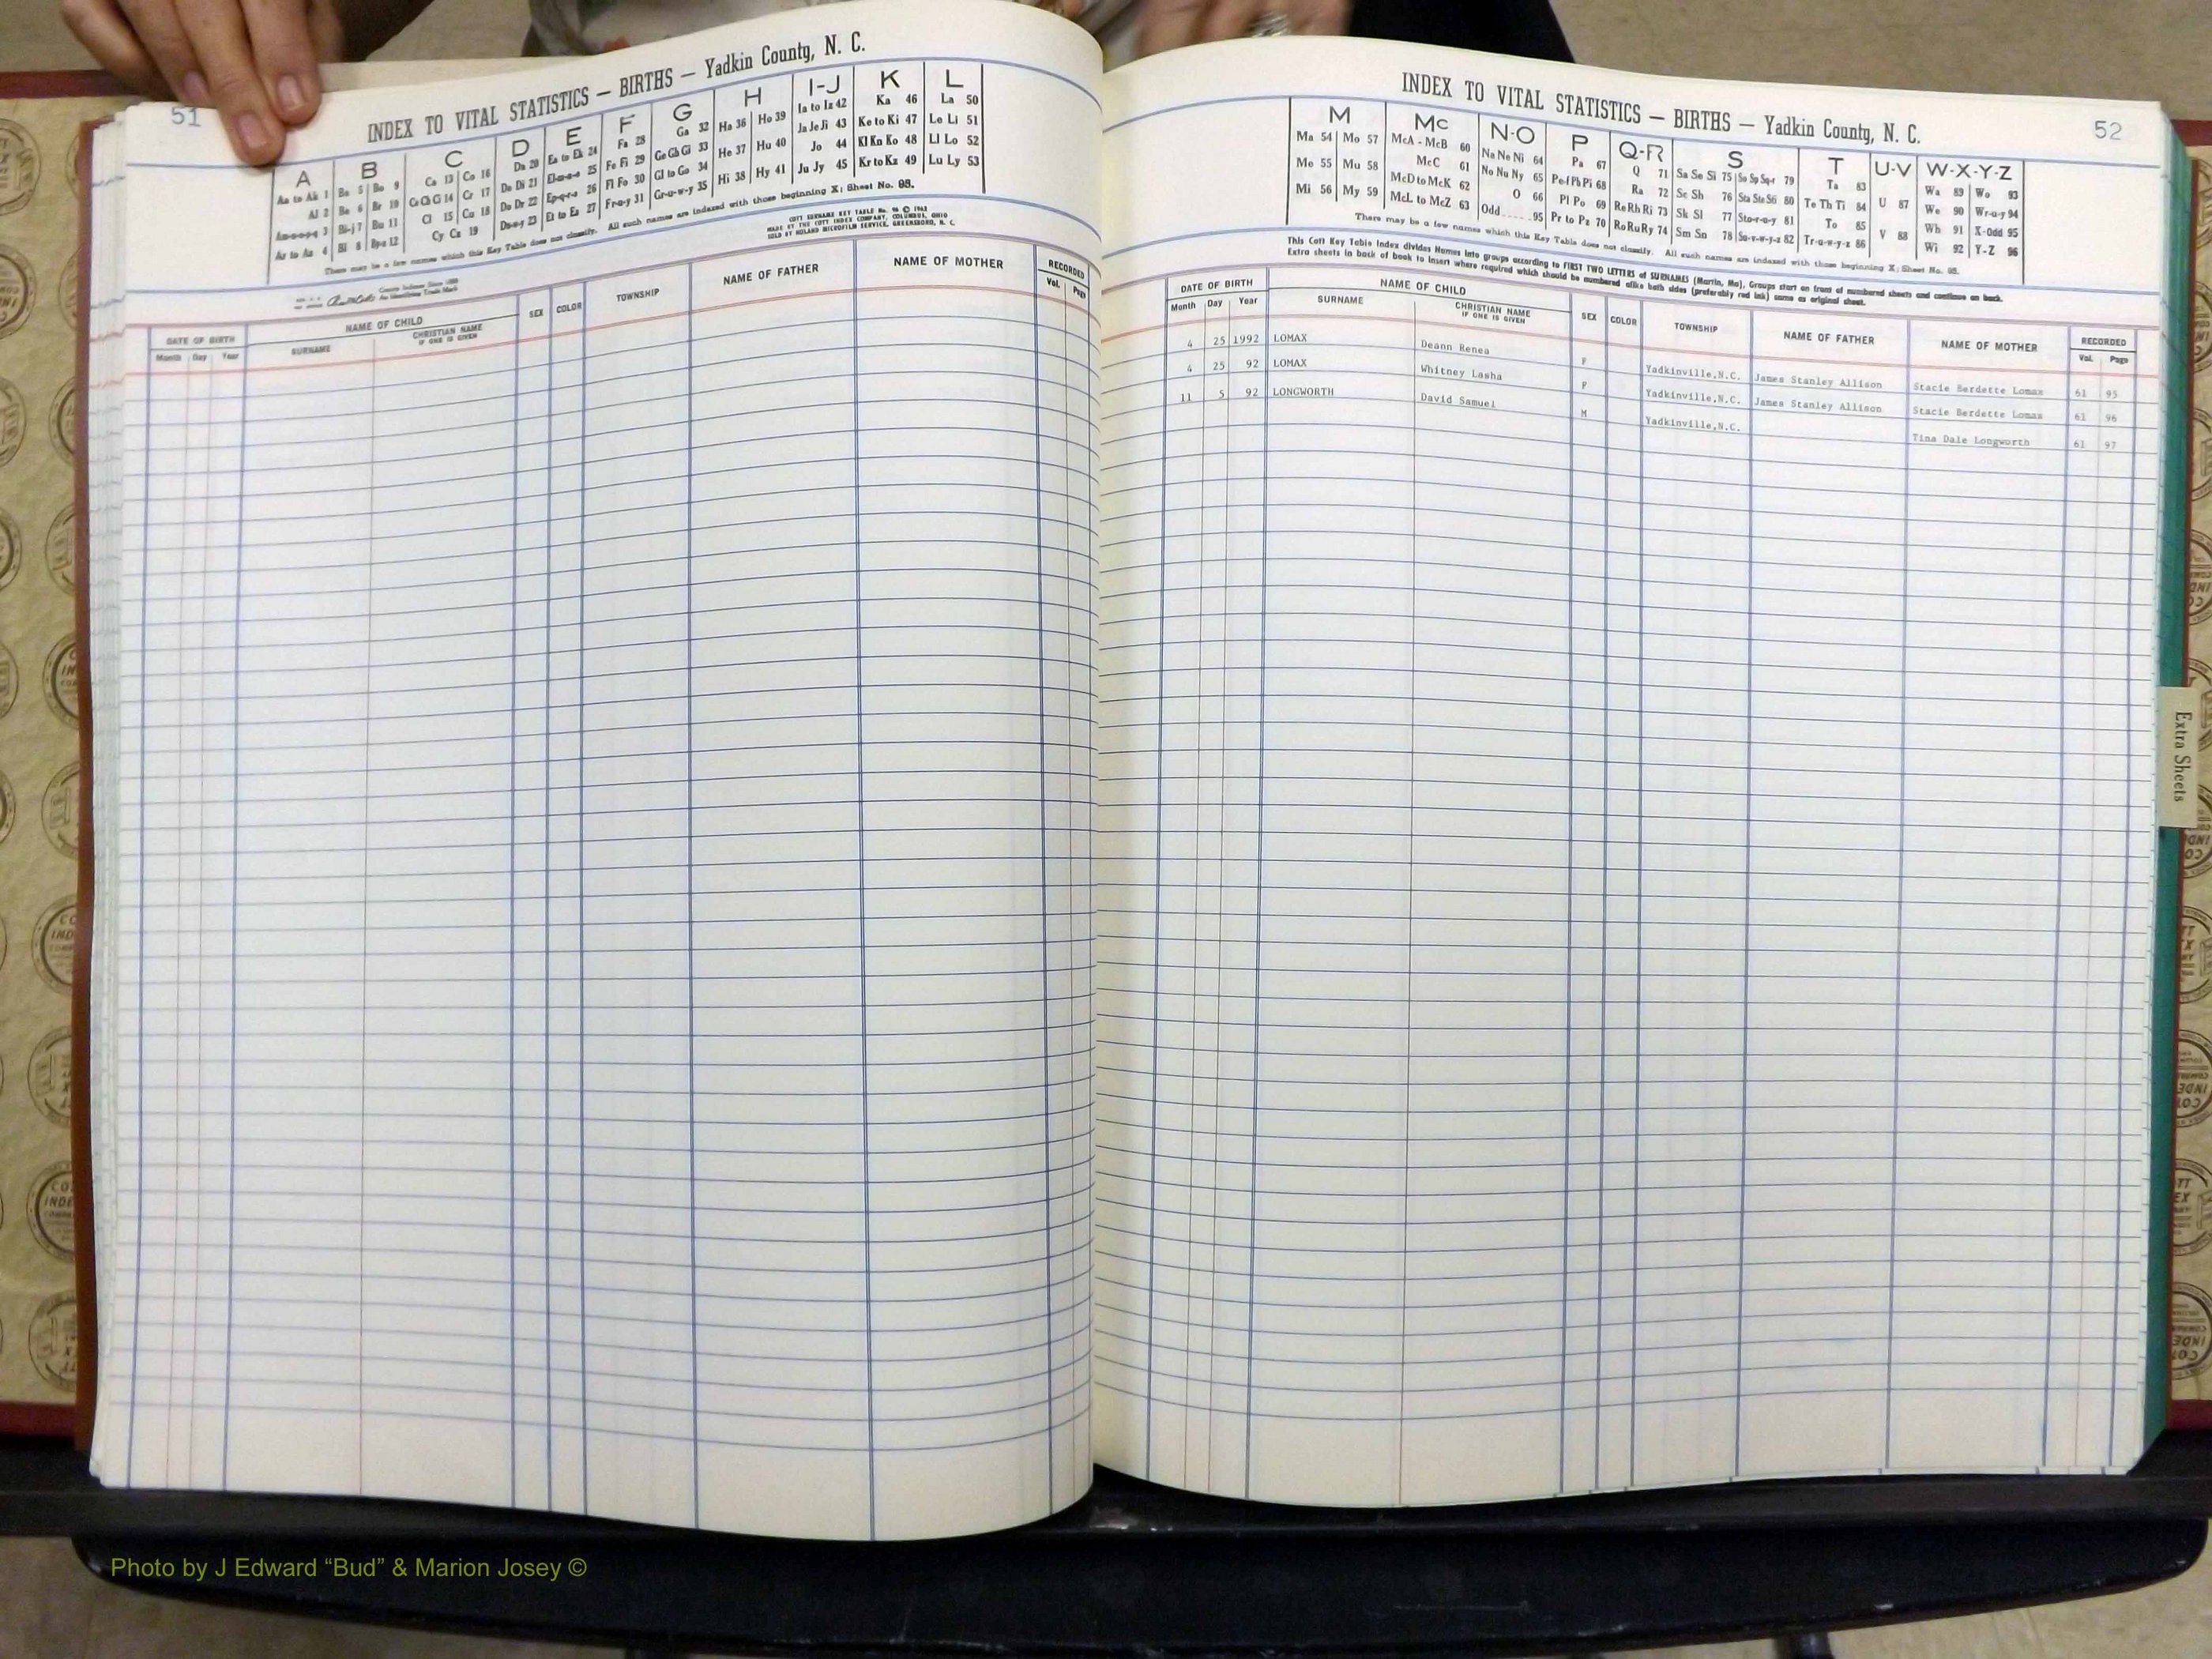 51
INDEX TO VITAL STATISTICS — BIRTHS — Yadkin County, N. C.
A B C D E F G H I-J K L
Aa to Ak 1 Ba 5 Bo 9 Ca 13 Co 16 Da 20 Ea to Ek 24 Fa 28 Ga 32 Ha 36 Ho 39 Ia to Iz 42 Ka 46 La 50
Al 2 Be 6 Br 10 Ce Ch Ci 14 Cr 17 De Di 21 El-m-n-o 25 Fe Fi 29 Ge Gh Gi 33 He 37 Hu 40 Ja Je Ji 43 Ke to Ki 47 Le Li 51
Am-n-o-p-q 3 Bi-j 7 Bu 11 Cl 15 Cu 18 Do Dr 22 Ep-q-r-s 26 Fl Fo 30 Gl to Go 34 Hi 38 Hy 41 Jo 44 Kl Kn Ko 48 Ll Lo 52
Ar to Az 4 Bl 8 By-z 12 Cy Cz 19 Du-w-y 23 Et to Ez 27 Fr-u-y 31 Gr-u-w-y 35 Ju Jy 45 Kr to Kz 49 Lu Ly 53
There may be a few names which this Key Table does not classify. All such names are indexed with those beginning X: Sheet No. 95.
COTT SURNAME KEY TABLE No. 96 © 1962
MADE BY THE COTT INDEX COMPANY, COLUMBUS, OHIO
SOLD BY HOLAND MICROFILM SERVICE, GREENSBORO, N. C.
County Indexes Since 1888
An Identifying Trade Mark
DATE OF BIRTH NAME OF CHILD SEX COLOR TOWNSHIP NAME OF FATHER NAME OF MOTHER RECORDED
Month Day Year SURNAME CHRISTIAN NAME IF ONE IS GIVEN Vol. Page
INDEX TO VITAL STATISTICS — BIRTHS — Yadkin County, N. C.
52
M Mc N-O P Q-R S T U-V W-X-Y-Z
Ma 54 Mo 57 McA - McB 60 Na Ne Ni 64 Pa 67 Q 71 Sa Se Si 75 So Sp Sq-r 79 Ta 83 U 87 Wa 89 Wo 93
Me 55 Mu 58 McC 61 No Nu Ny 65 Pe-f Ph Pi 68 Ra 72 Sc Sh 76 Sta Ste Sti 80 Te Th Ti 84 V 88 We 90 Wr-u-y 94
Mi 56 My 59 McD to McK 62 O 66 Pl Po 69 Re Rh Ri 73 Sk Sl 77 Sto-r-u-y 81 To 85 Wh 91 X-Odd 95
McL to McZ 63 Odd 95 Pr to Pz 70 Ro Ru Ry 74 Sm Sn 78 Su-v-w-y-z 82 Tr-u-w-y-z 86 Wi 92 Y-Z 96
There may be a few names which this Key Table does not classify. All such names are indexed with those beginning X: Sheet No. 95.
This Cott Key Table Index divides Names into groups according to FIRST TWO LETTERS of SURNAMES (Martin, Ma). Groups start on front of numbered sheets and continue on back.
Extra sheets in back of book to insert where required which should be numbered alike both sides (preferably red ink) same as original sheet.
DATE OF BIRTH NAME OF CHILD SEX COLOR TOWNSHIP NAME OF FATHER NAME OF MOTHER RECORDED
Month Day Year SURNAME CHRISTIAN NAME IF ONE IS GIVEN Vol. Page
4 25 1992 LOMAX Deann Renea F Yadkinville,N.C. James Stanley Allison Stacie Berdette Lomax 61 95
4 25 92 LOMAX Whitney Lasha F Yadkinville,N.C. James Stanley Allison Stacie Berdette Lomax 61 96
11 5 92 LONGWORTH David Samuel M Yadkinville,N.C. Tina Dale Longworth 61 97
Extra Sheets
Photo by J Edward “Bud” & Marion Josey ©